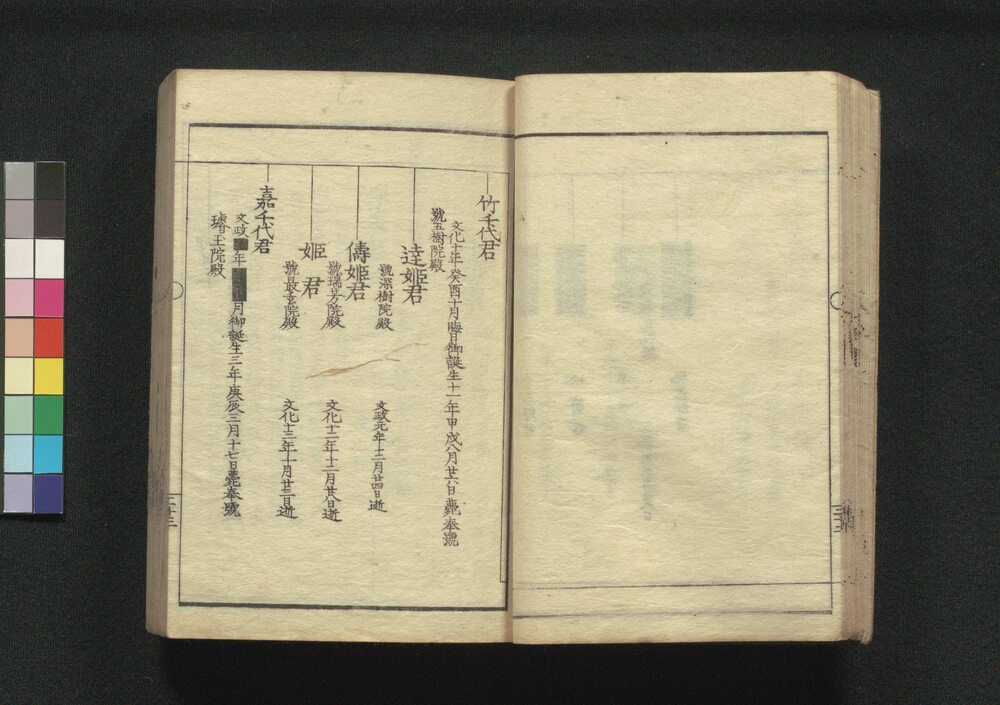 竹千代君
文化十年癸酉十月晦日御誕生十一年甲戌八月廿六日薨奉號
號玉樹院殿
達姫君
號深樹院殿
文政元年十二月廿四日逝
儔姫君
號瑞芳院殿
文化十二年十二月廿八日逝
姫君
號最玄院殿
文化十三年十月廿三日逝
嘉千代君
文政 年 月御誕生三年庚辰三月十七日薨奉號
璿玉院殿
三十三